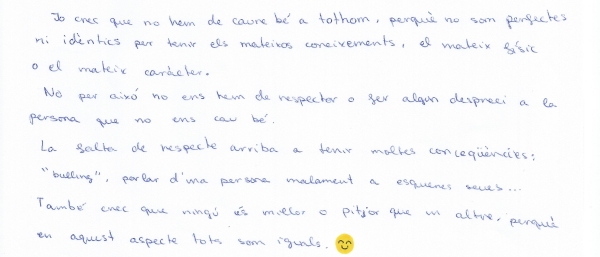 Jo crec que no hem de caure bé a tothom, perquè no som perfectes
ni idèntics per tenir els mateixos coneixements, el mateix físic
o el mateix caràcter.
No per això no ens hem de respectar o fer algun despreci a la
persona que no ens cau bé.
La falta de respecte arriba a tenir moltes conceqüències:
"bulling", parlar d'una persona malament a esquenes seues...
També crec que ningú és millor o pitjor que un altre, perquè
en aquest aspecte tots som iguals.